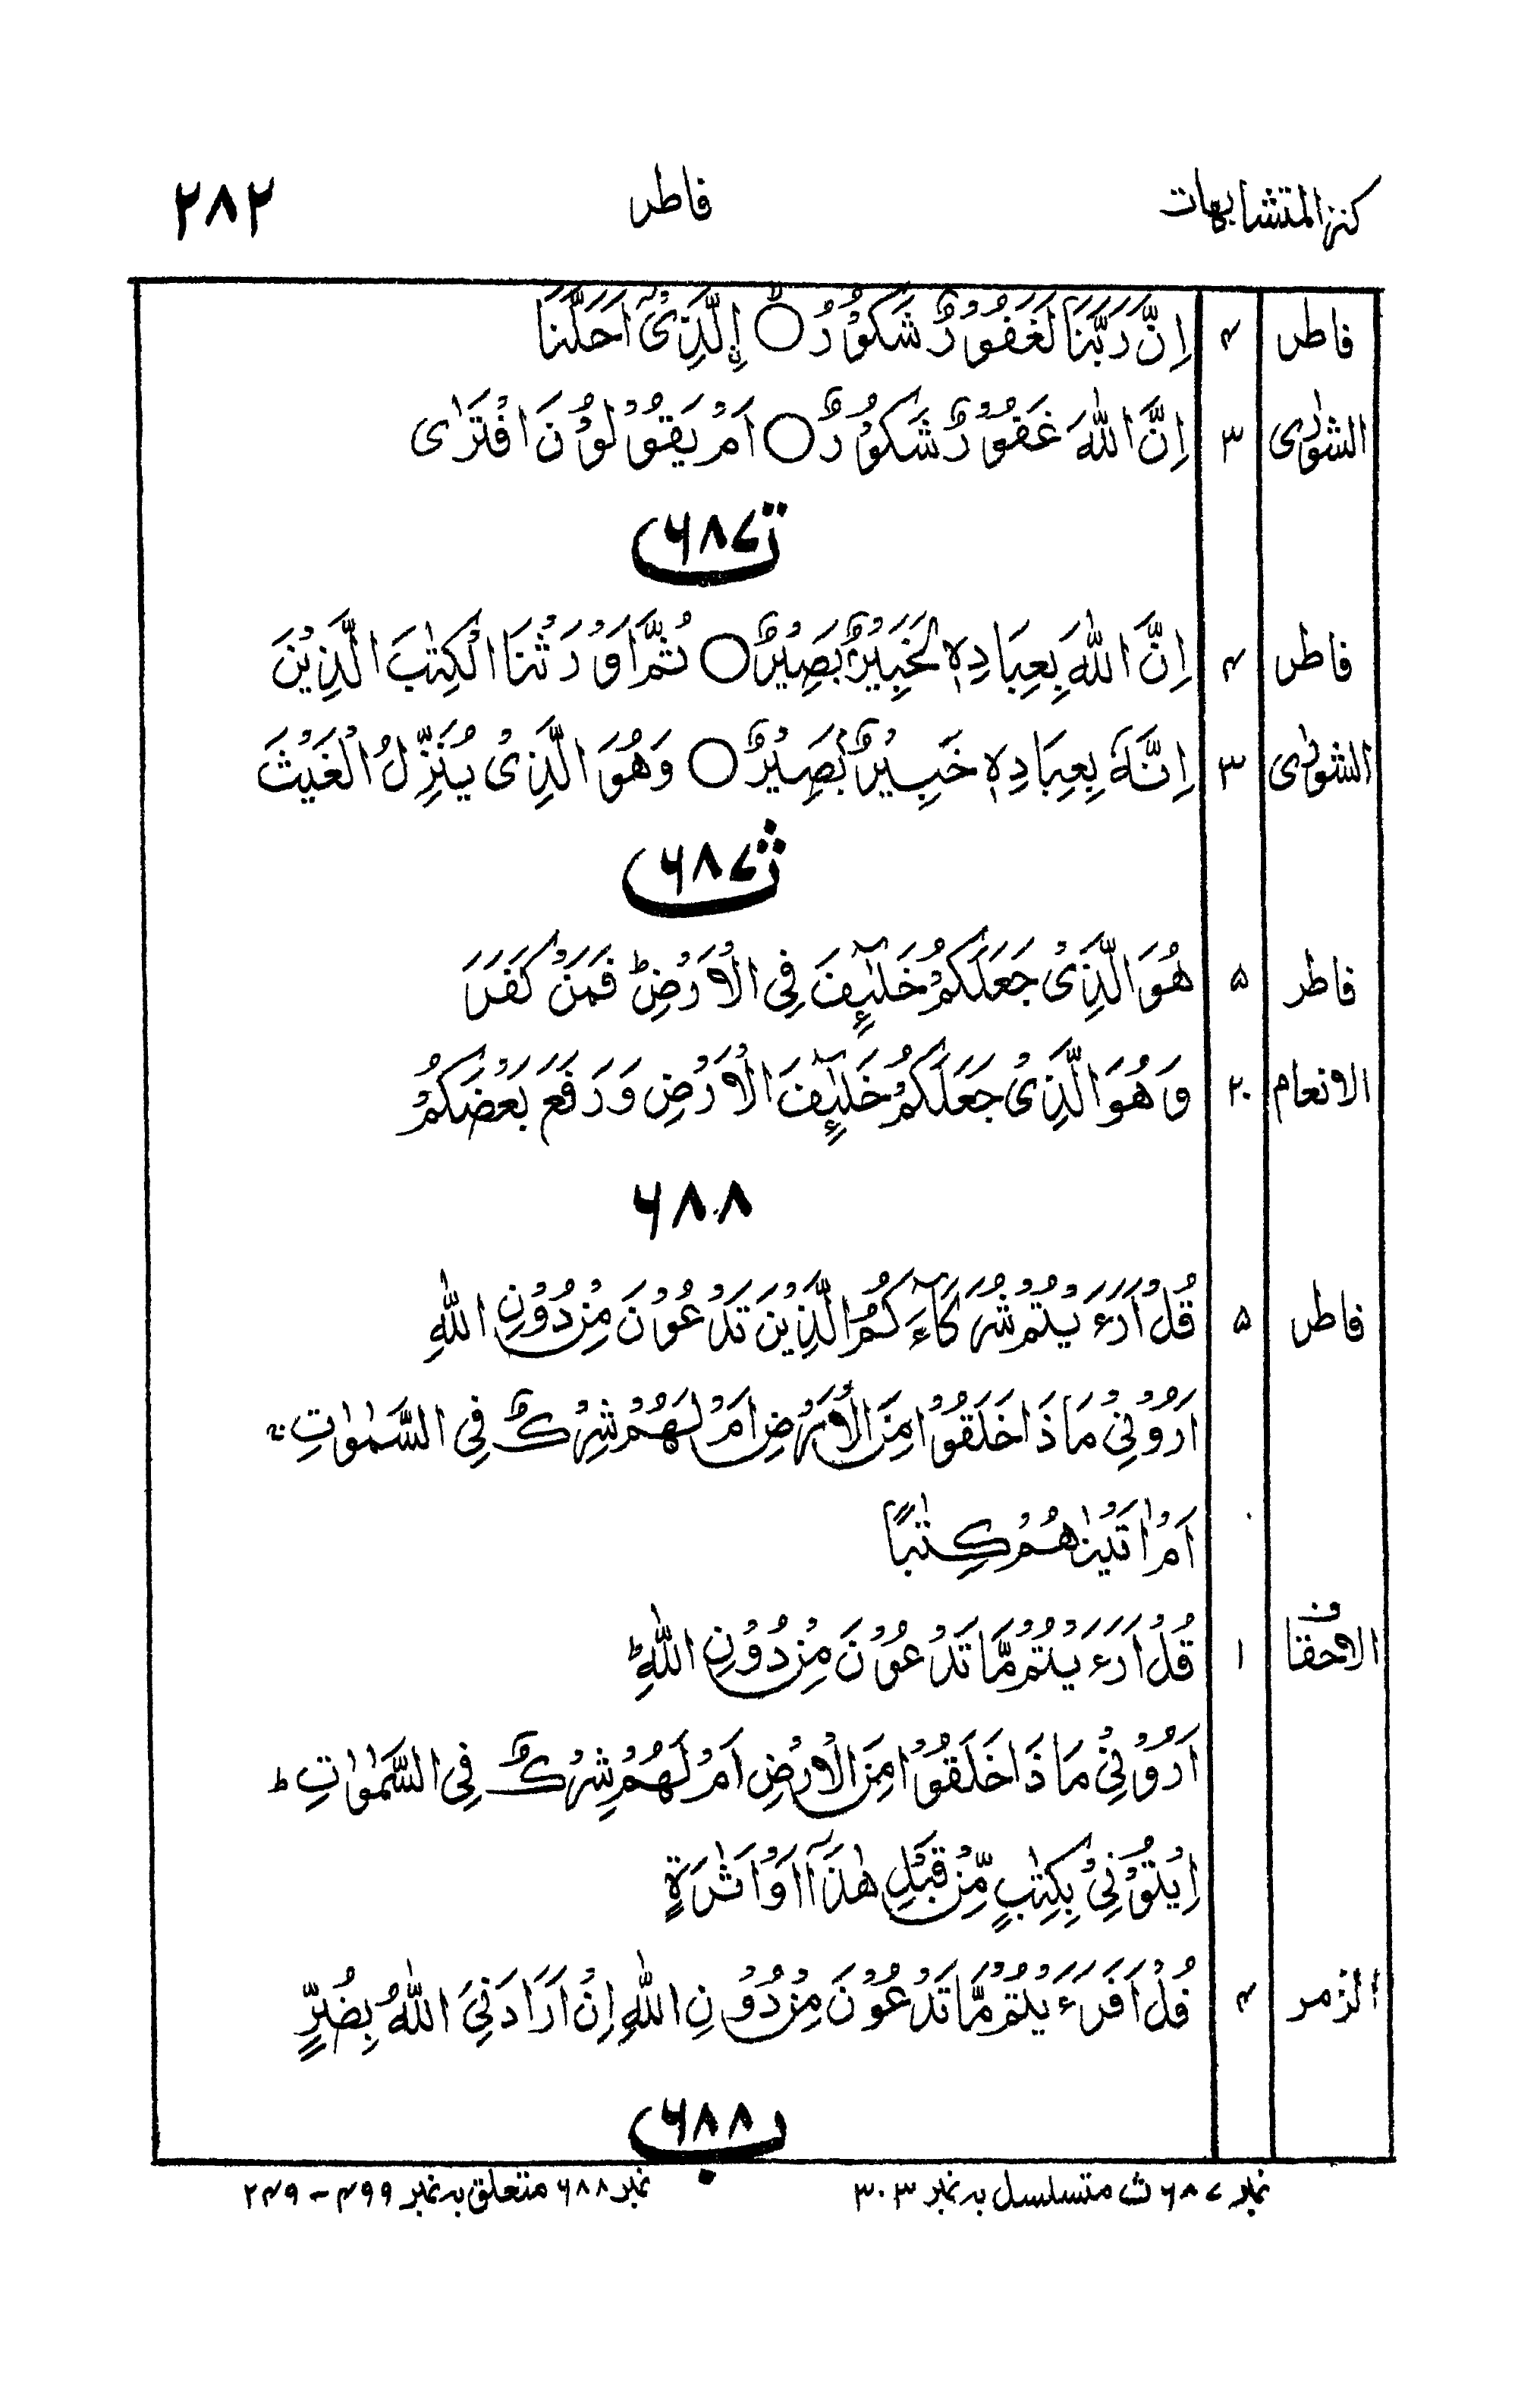 كنز المتشابهات فاطر ۲۸۲
فاطر ۴ اِنَّ رَبَّنَا لَغَفُوْرٌ شَكُوْرُ ۙ○ اِۨلَّذِیْۤ اَحَلَّنَا
الشورٰی ۳ اِنَّ اللّٰهَ غَفُوْرٌ شَكُوْرٌ ○ اَمْ یَقُوْلُوْنَ افْتَرٰی
۶۸۷ ت
فاطر ۴ اِنَّ اللّٰهَ بِعِبَادِهٖ لَخَبِیْرٌۢ بَصِیْرٌ ○ ثُمَّ اَوْرَثْنَا الْكِتٰبَ الَّذِیْنَ
الشورٰی ۳ اِنَّهٗ بِعِبَادِهٖ خَبِیْرٌۢ بَصِیْرٌ ○ وَهُوَ الَّذِیْ یُنَزِّلُ الْغَیْثَ
۶۸۷ ث
فاطر ۵ هُوَ الَّذِیْ جَعَلَكُمْ خَلٰٓئِفَ فِی الْاَرْضِ ؕ فَمَنْ كَفَرَ
الانعام ۲۰ وَهُوَ الَّذِیْ جَعَلَكُمْ خَلٰٓئِفَ الْاَرْضِ وَرَفَعَ بَعْضَكُمْ
۶۸۸
فاطر ۵ قُلْ اَرَءَیْتُمْ شُرَكَآءَكُمُ الَّذِیْنَ تَدْعُوْنَ مِنْ دُوْنِ اللّٰهِ
اَرُوْنِیْ مَاذَا خَلَقُوْا مِنَ الْاَرْضِ اَمْ لَهُمْ شِرْكٌ فِی السَّمٰوٰتِ ۚ
اَمْ اٰتَیْنٰهُمْ كِتٰبًا
الاحقاف ۱ قُلْ اَرَءَیْتُمْ مَّا تَدْعُوْنَ مِنْ دُوْنِ اللّٰهِ ؕ
اَرُوْنِیْ مَاذَا خَلَقُوْا مِنَ الْاَرْضِ اَمْ لَهُمْ شِرْكٌ فِی السَّمٰوٰتِ ؕ
اِیْتُوْنِیْ بِكِتٰبٍ مِّنْ قَبْلِ هٰذَاۤ اَوْ اَثٰرَةٍ
الزمر ۴ قُلْ اَفَرَءَیْتُمْ مَّا تَدْعُوْنَ مِنْ دُوْنِ اللّٰهِ اِنْ اَرَادَنِیَ اللّٰهُ بِضُرٍّ
۶۸۸ ب
نمبر ۶۸۷ ث متسلسل بہ نمبر ۳۰۳ نمبر ۶۸۸ متعلق بہ نمبر ۴۹۹ - ۲۴۹